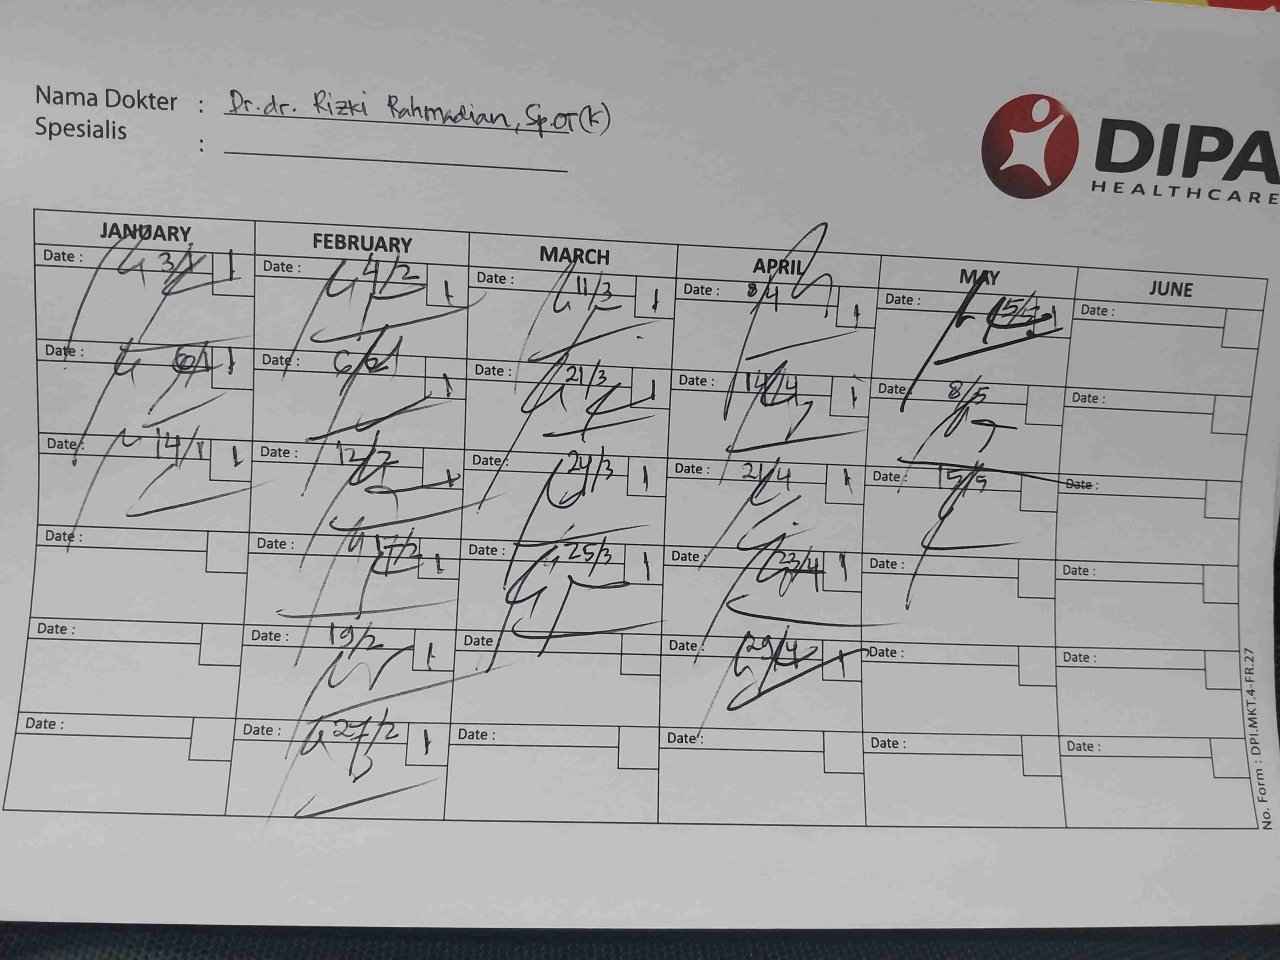 Nama Dokter : Dr. dr. Rizki Rahmadian, Sp.OT(K)
Spesialis :
DIPA
HEALTHCARE
JANUARY FEBRUARY MARCH APRIL MAY JUNE
Date : 3/1 1 Date : 4/2 1 Date : 11/3 1 Date : 8/4 1 Date : 1 Date :
Date : 6/1 1 Date : 6/2 1 Date : 21/3 1 Date : 14/4 1 Date : 8/5 Date :
Date : 14/1 1 Date : 12/2 1 Date : 24/3 1 Date : 21/4 1 Date : 15/5 Date :
Date : Date : 17/2 1 Date : 25/3 1 Date : 23/4 1 Date : Date :
Date : Date : 19/2 1 Date : Date : 29/4 1 Date : Date :
Date : Date : 27/2 1 Date : Date : Date : Date :
No. Form : DPI.MKT.4-FR.27